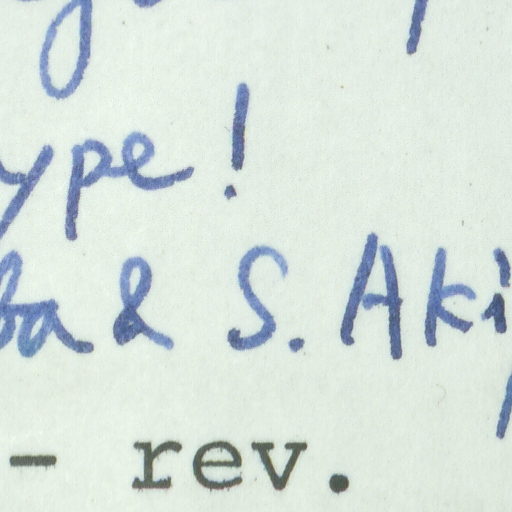 ype!
ba & S. Aki
- rev.